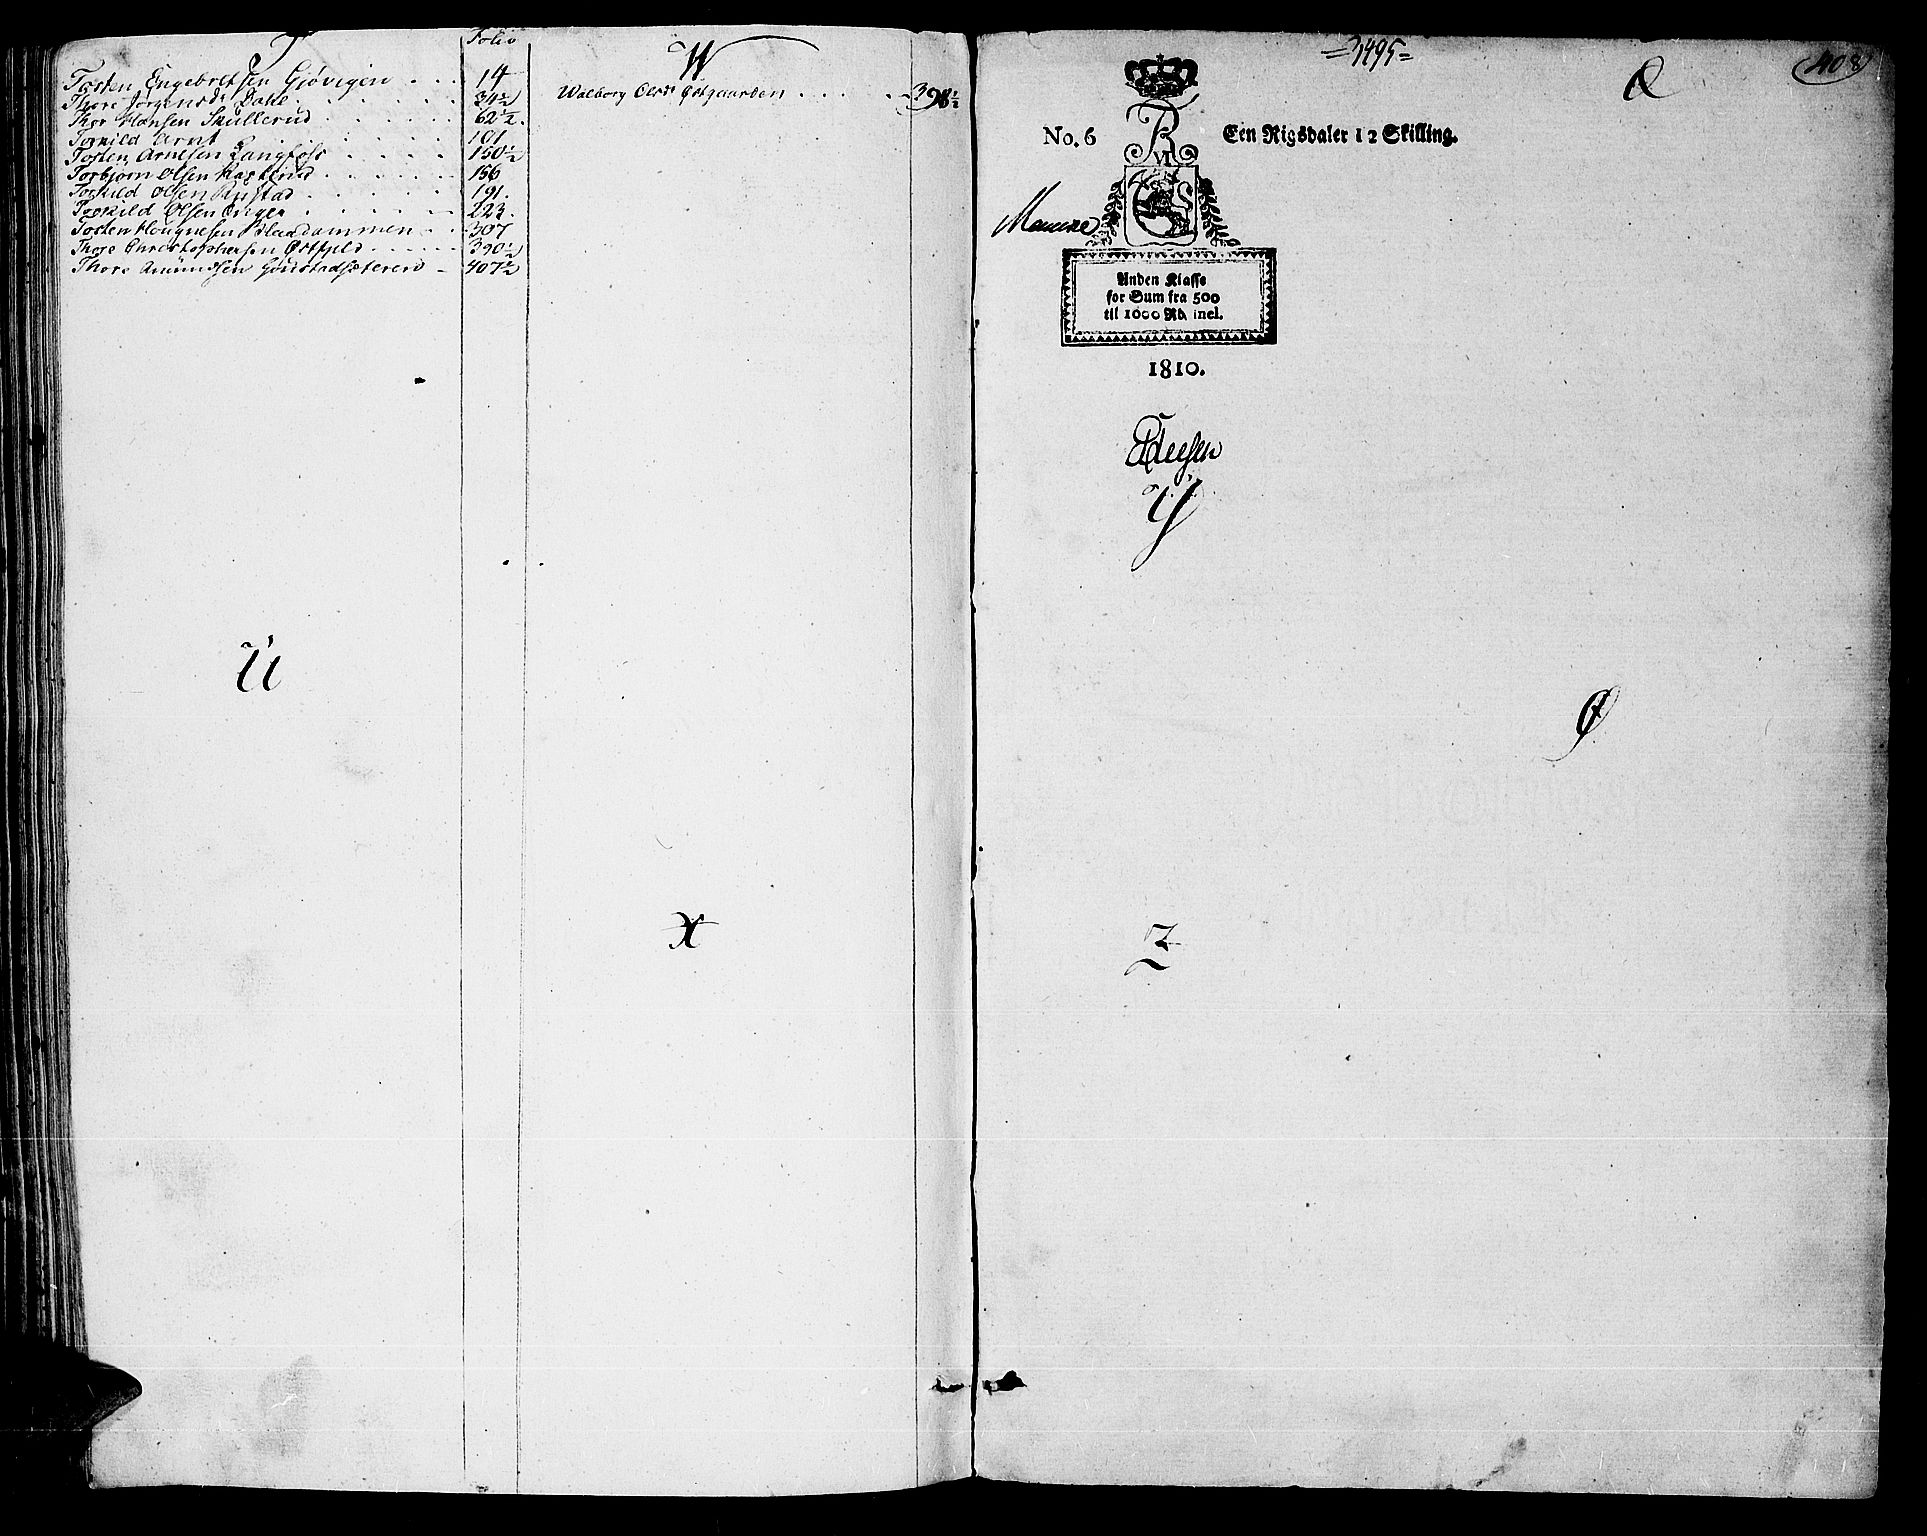 T
Folio
Tosten Engebretsen Gjøvigen 14
Thore Jørgensd: Dahl 34½
Thor Hansen Skullerud 62½
Torkild Arnt 101
Tosten Arnesen Langfoss 150½
Torbjørn Olsen 156
Torkild Olsen Rustad 191.
Torkild Olsen 223.
Tosten Haagnesen 307
Thore Christophersen 390½
Thore Amundsen Gunstadsæteren 407½
U
W
Walborg Olsd: Østgaarden 398½
X
=3495=
408
No. 6
FR
VI
Een Rigsdaler 12 Skilling.
Anden Klasse
for Sum fra 500
til 1000 Rd. incl.
1810.
Y
Z
Æ
Ø